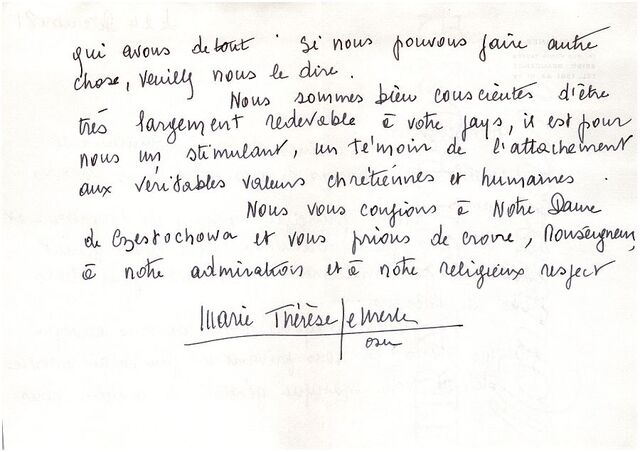 qui avons debout. Si nous pouvons faire autre
chose, veuillez nous le dire.
Nous sommes bien conscientes d'être
très largement redevable à votre pays, il est pour
nous un stimulant, un témoin de l'attachement
aux véritables valeurs chrétiennes et humaines.
Nous vous confions à Notre Dame
de Czestochowa et vous prions de croire, Monseigneur,
à notre admiration et à notre religieux respect
Marie Thérèse
osu